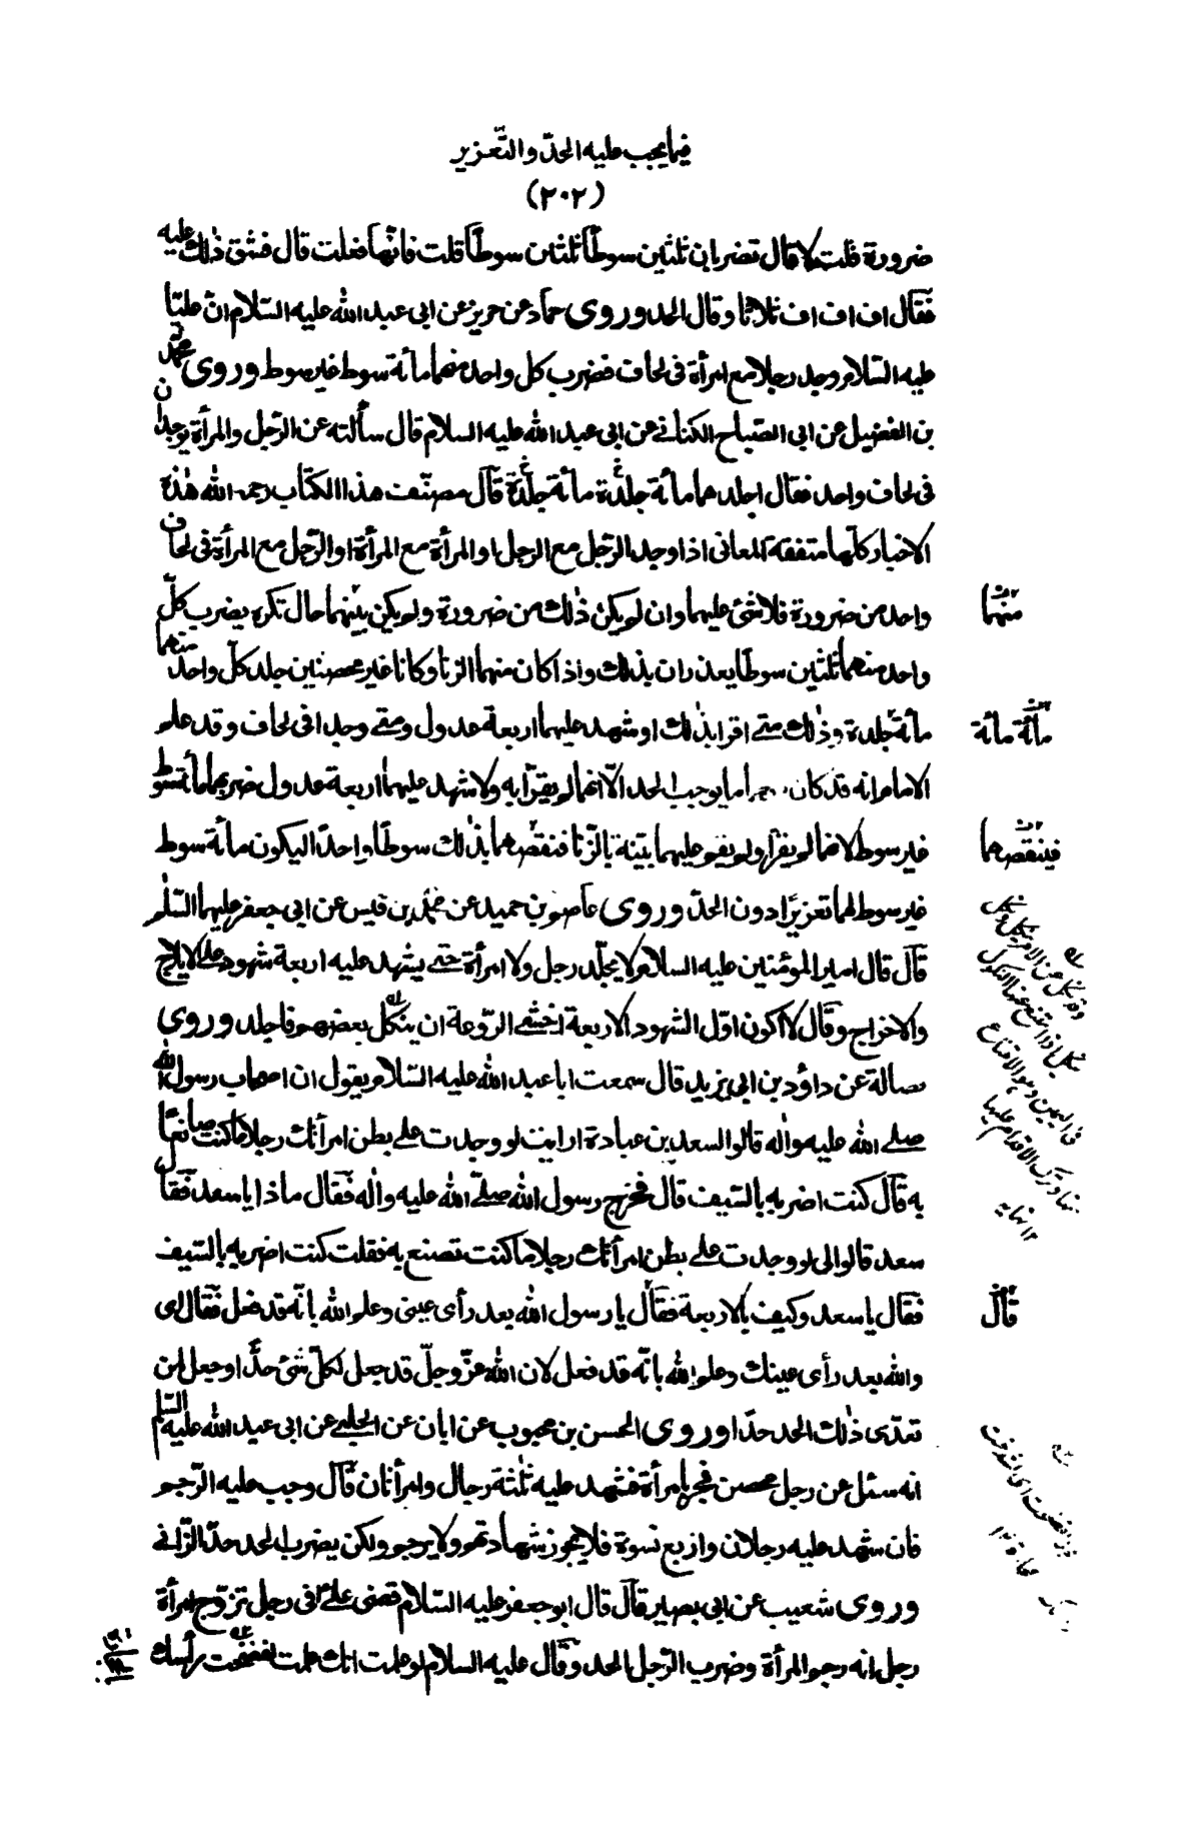 فيما يجب عليه الحدّ والتّعزير
(٢٠٢)
ضرورة قلت لا قال تضربان ثلثين سوطًا ثلثين سوطًا قلت فانّها فعلت قال فشق ذٰلك عليه
فقال اف اف اف ثلاثا وقال الحد وروى حماد عن حريز عن ابى عبد الله عليه السّلام انّ عليّا
عليه السّلام وجد رجلا مع امرأة فى لحاف فضرب كل واحد منهما مائة سوط غير سوط وروى محمّد
بن الفضيل عن ابى الصّباح الكنانى عن ابى عبد الله عليه السلام قال سألته عن الرّجل والمرأة يوجدان
فى لحاف واحد فقال اجلدهما مائة جلدة مائة جلدة قال مصنّف هذا الكتاب رحمه الله هٰذه
الاخبار كلّها متفقة المعانى اذا وجد الرّجل مع الرجل او المرأة مع المرأة او الرّجل مع المرأة فى لحاف
واحد من ضرورة فلا شئ عليهما وان لم يكن ذٰلك من ضرورة ولم يكن بينهما حال تكره يضرب كلّ
منهما
واحد منهما ثلثين سوطًا يعذران بذلك واذا كان منهما الزنا وكانا غير محصنين جلد كلّ واحد منهما
مائة جلدة وذٰلك متى اقرا بذٰلك او شهد عليهما اربعة عدول ومتى وجدا فى لحاف وقد علم
مائة مائة
الامام انه قد كان منهما ما يوجب الحد الّا انهما لم يقرّا به ولا شهد عليهما اربعة عدول ضربهما مائة سوط
غير سوط لانهما لم يقرّا ولم يقم عليهما بيّنة بالزّنا فنقصهما بذٰلك سوطًا واحدًا ليكون مائة سوط
فينقصهما
غير سوط لهما تعزيرًا دون الحدّ وروى عاصم بن حميد عن محمّد بن قيس عن ابى جعفر عليهما السّلم
قال قال امير المؤمنين عليه السلام لا يجلّد رجل ولا امرأة حتى يشهد عليه اربعة شهود على الايلاج
والاخراج وقال لا اكون اوّل الشهود الاربعة اخشى الرّوعة ان ينكل بعضهم فاجلد وروى
فضالة عن داؤد بن ابى يزيد قال سمعت ابا عبد الله عليه السّلام يقول ان اصحاب رسول الله
صلى الله عليه واله قالوا لسعد بن عبادة ارايت لو وجدت على بطن امرأتك رجلا ما كنت صانعًا
به قال كنت اضربه بالسّيف قال فخرج رسول الله صلّى الله عليه واٰله فقال ماذا يا سعد فقال
سعد قالوا لى لو وجدت على بطن امرأتك رجلا ما كنت تصنع به فقلت كنت اضربه بالسّيف
فقال يا سعد وكيف بالاربعة فقال يا رسول الله بعد رأى عينى وعلم الله بانّه قد فعل فقال اى
قال
والله بعد رأى عينك وعلم الله بانّه قد فعل لان الله عزّ وجلّ قد جعل لكلّ شئ حدًّا وجعل لمن
تعدّى ذٰلك الحد حدّا وروى الحسن بن محبوب عن ابان عن الحلبى عن ابى عبد الله عليه السّلم
انه سئل عن رجل محصن فجر بامرأة فشهد عليه ثلٰثة رجال وامرأتان قال وجب عليه الرّجم
فان شهد عليه رجلان واربع نسوة فلا يجوز شهادتهم ولا يرجم ولكن يضرب الحد حدّ الزّانى
وروى شعيب عن ابى بصير قال قال ابو جعفر عليه السّلام قضى علىّ فى رجل تزوّج امرأة
رجل انه رجم المرأة وضرب الرّجل الحد وقال عليه السلام لو علمت انك علمت لفضخت رأسك